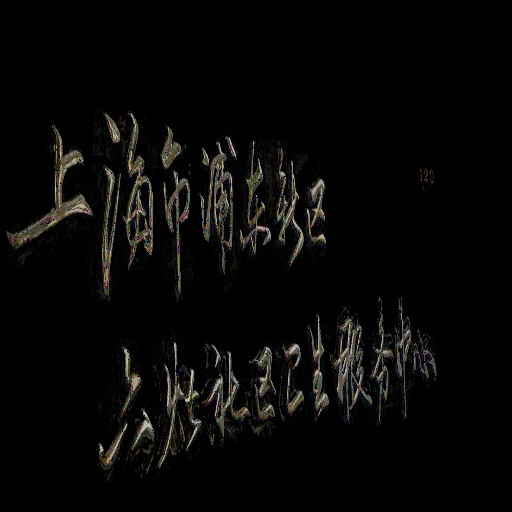 上海市浦东新区
六灶社区卫生服务中心
189